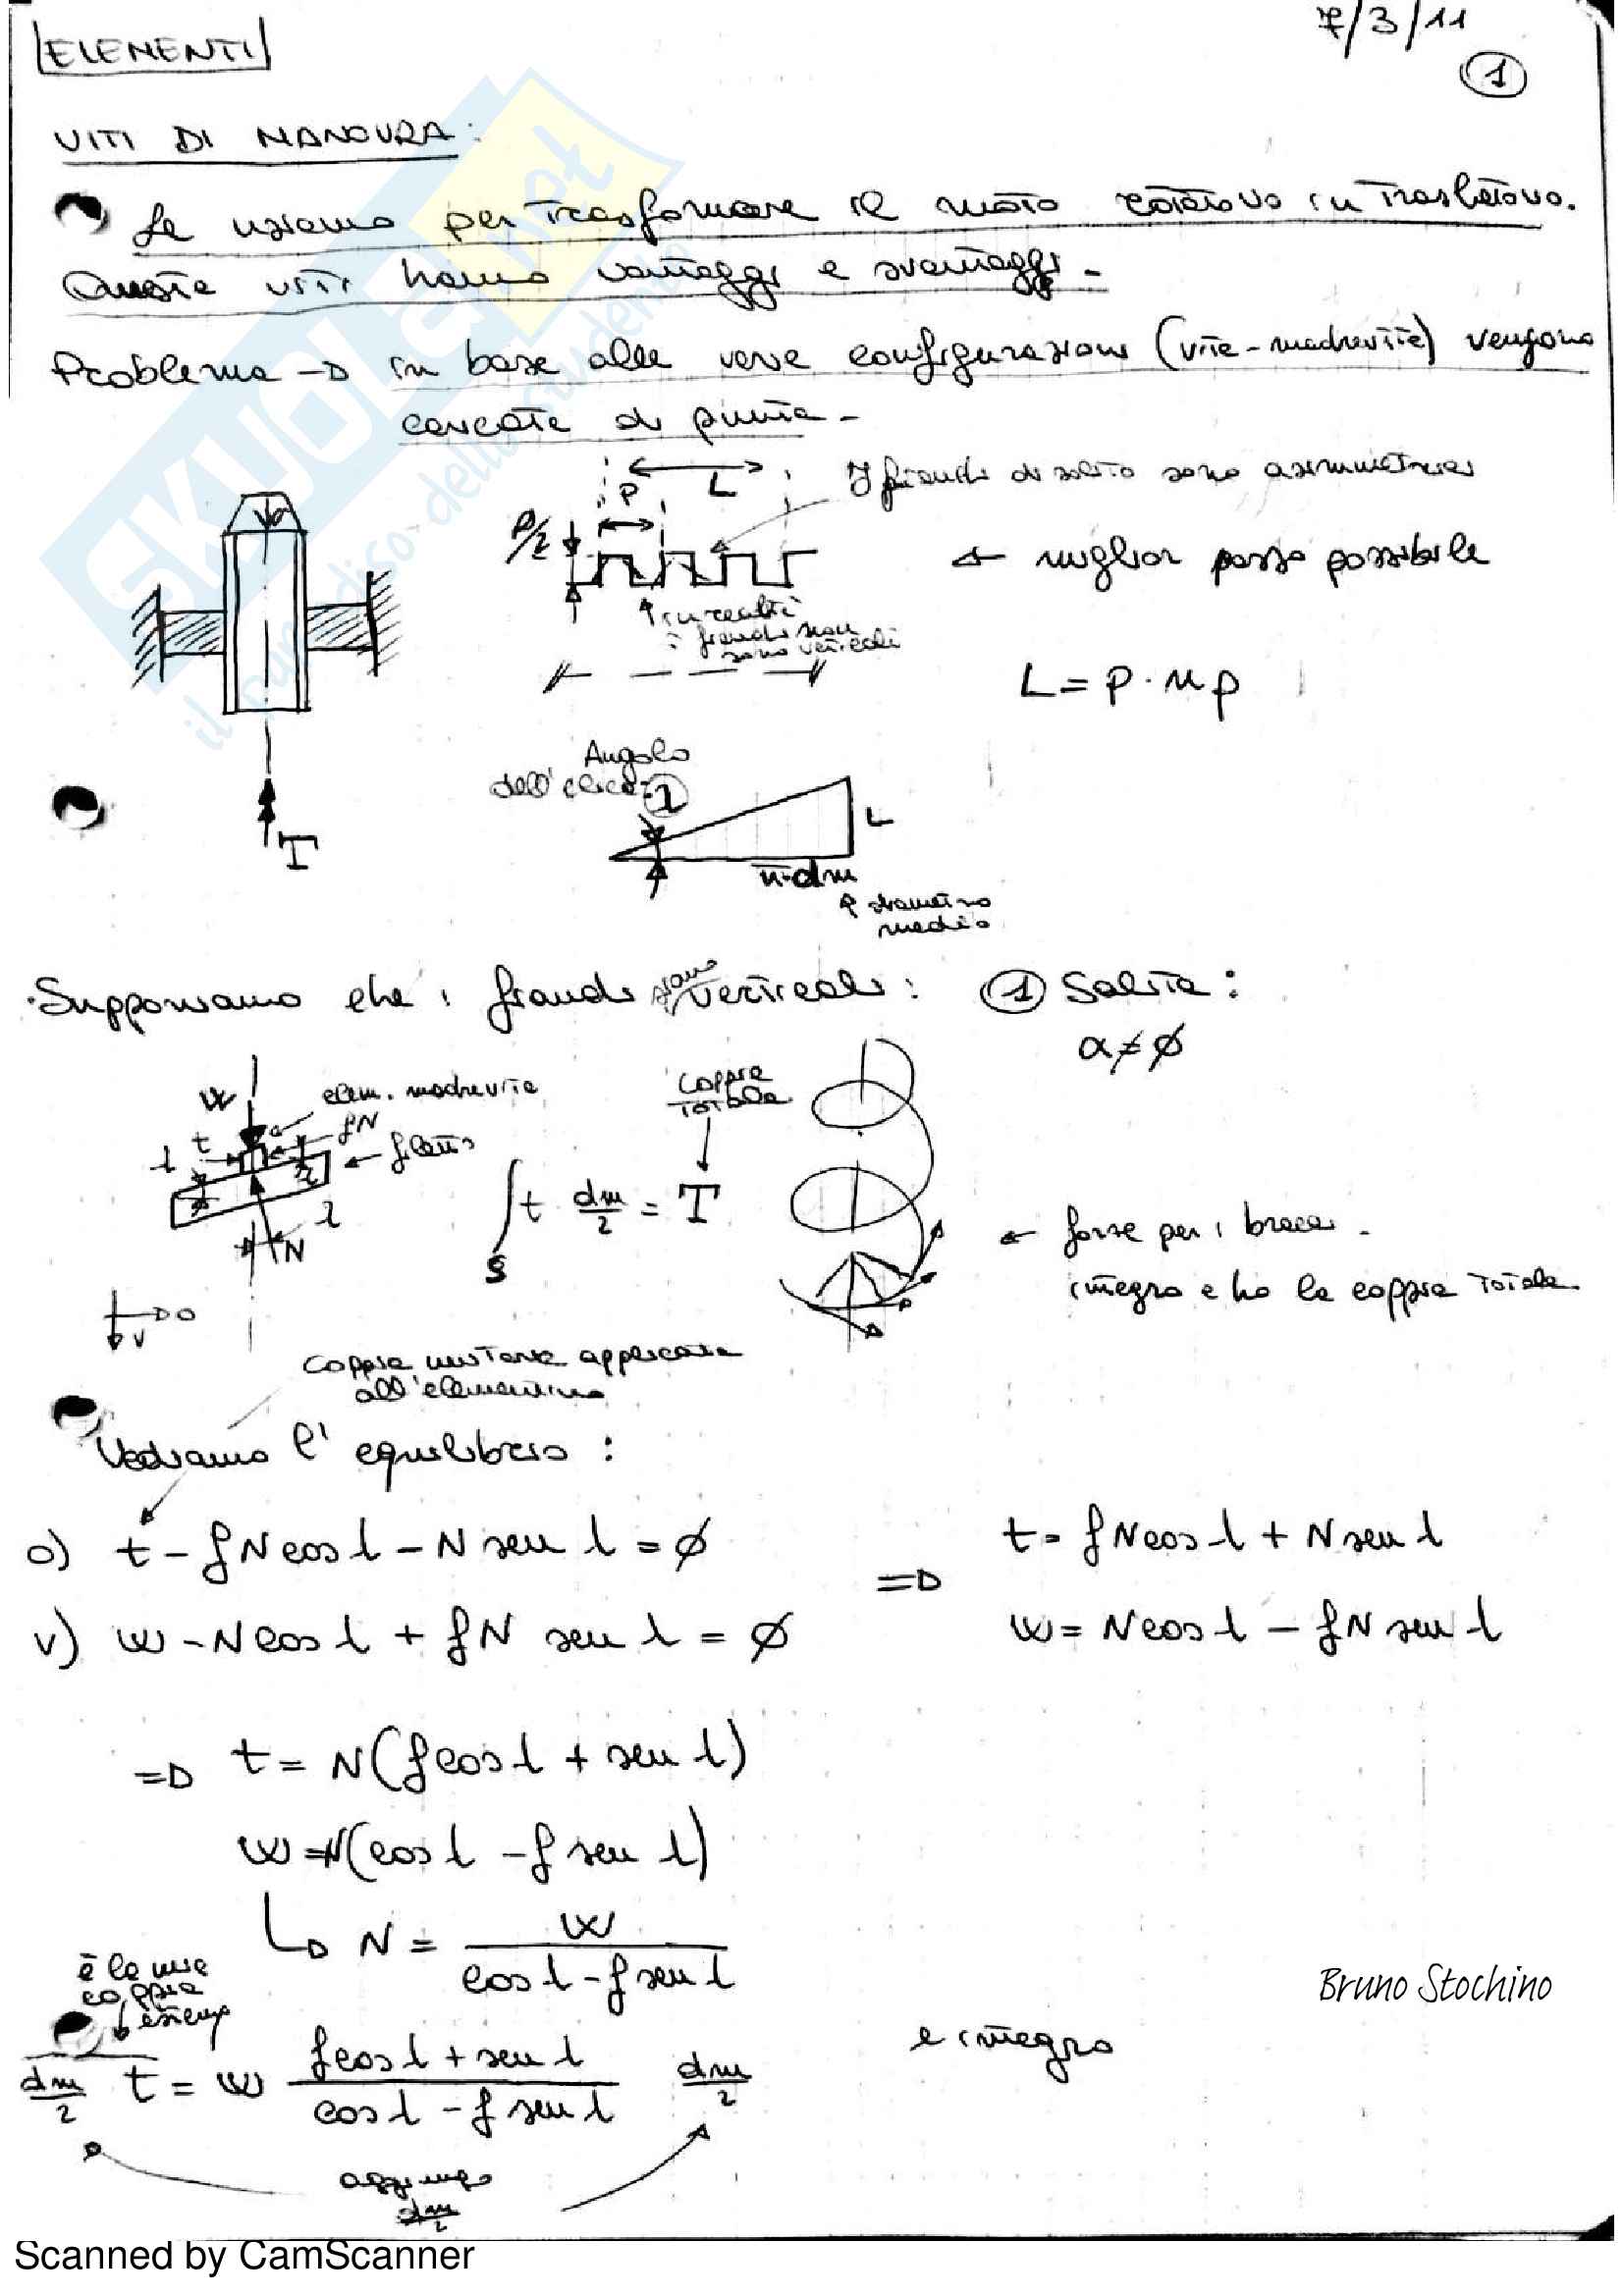 7/3/11
ELEMENTI
1
VITI DI MANOVRA:
Le usiamo per trasformare il moto rotatorio in traslatorio.
Queste viti hanno vantaggi e svantaggi -
Problema → in base alle varie configurazioni (vite-madrevite) vengono
caricate di punta -
P L
P/2
I fianchi di solito sono asimmetrici
← miglior passo possibile
↑ in realtà
i fianchi non
sono verticali
L = P · np
Angolo
dell'elica: 1
L
π·dm
↑ diametro
medio
T
Supponiamo che i fianchi siano verticali: 1 Salita:
α ≠ ∅
W
elem. madrevite
fN
t
λ
← filetto
λ
N
Coppia
Totale
∫ t dm/2 = T
S
← forze per i bracci.
integro e ho la coppia totale
O
V
Coppia motore applicata
all'elementino
Vediamo l'equilibrio:
o) t - fN cos λ - N sen λ = ∅
⇒ t = fN cos λ + N sen λ
v) W - N cos λ + fN sen λ = ∅
W = N cos λ - fN sen λ
⇒ t = N(f cos λ + sen λ)
W = N(cos λ - f sen λ)
↳ N = W / (cos λ - f sen λ)
è la mia
coppia
esterna
dm/2 t = W (f cos λ + sen λ) / (cos λ - f sen λ) dm/2
e integro
aggiungo
dm/2
Bruno Stochino
SKUOLA.net
Scanned by CamScanner